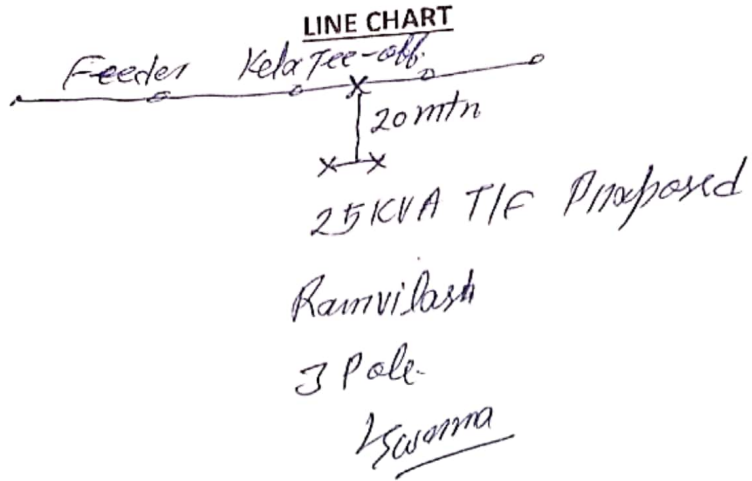 LINE CHART
Feeder Kela Tee-off.
20 mtr
25 KVA T/F Proposed
Ramvilash
3 Pole